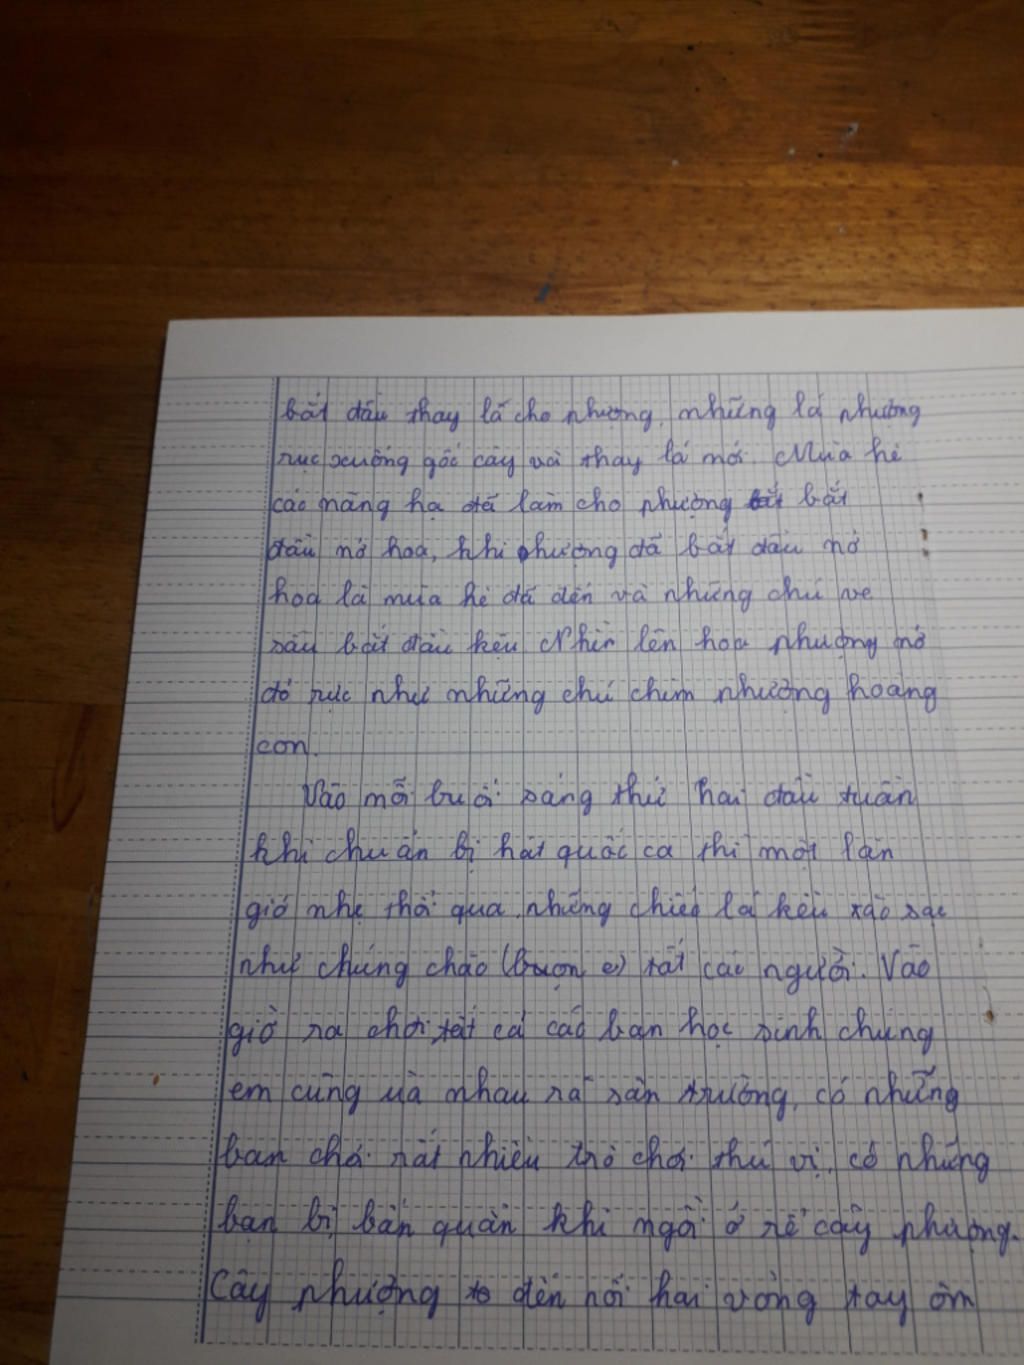 bắt đầu thay lá cho phượng, những lá phượng
rụng xuống gốc cây và thay lá mới. Mùa hè
các nắng hạ đã làm cho phượng bắt
đầu nở hoa, khi phượng đã bắt đầu nở
hoa là mùa hè đã đến và những chú ve
sầu bắt đầu kêu. Nhìn lên hoa phượng nở
đỏ rực như những chú chim phượng hoàng
con.
Vào mỗi buổi sáng thứ hai đầu tuần
khi chuẩn bị hát quốc ca thì một làn
gió nhẹ thổi qua, những chiếc lá kêu xào xạc
như chúng chào (buọn e) tất các người. Vào
giờ ra chơi tất cả các bạn học sinh chúng
em cùng ùa nhau ra sân trường, có những
bạn chơi rất nhiều trò chơi thú vị, có những
bạn bị bẩn quần khi ngồi ở rễ cây phượng.
Cây phượng to đến nỗi hai vòng tay ôm